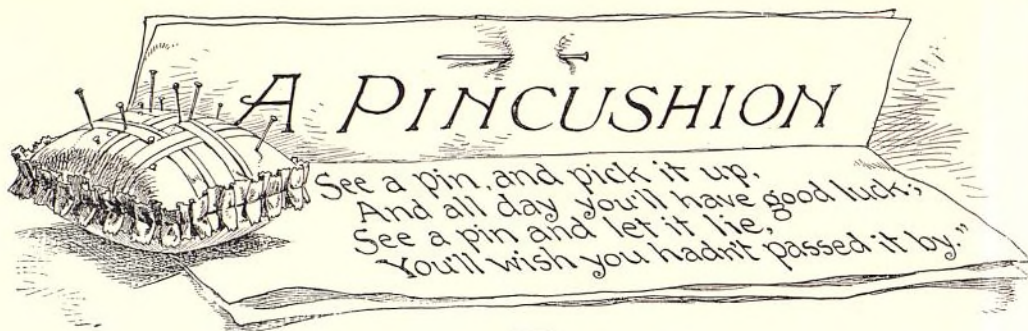 A PINCUSHION
See a pin, and pick it up,
And all day you'll have good luck;
See a pin and let it lie,
You'll wish you hadn't passed it by."